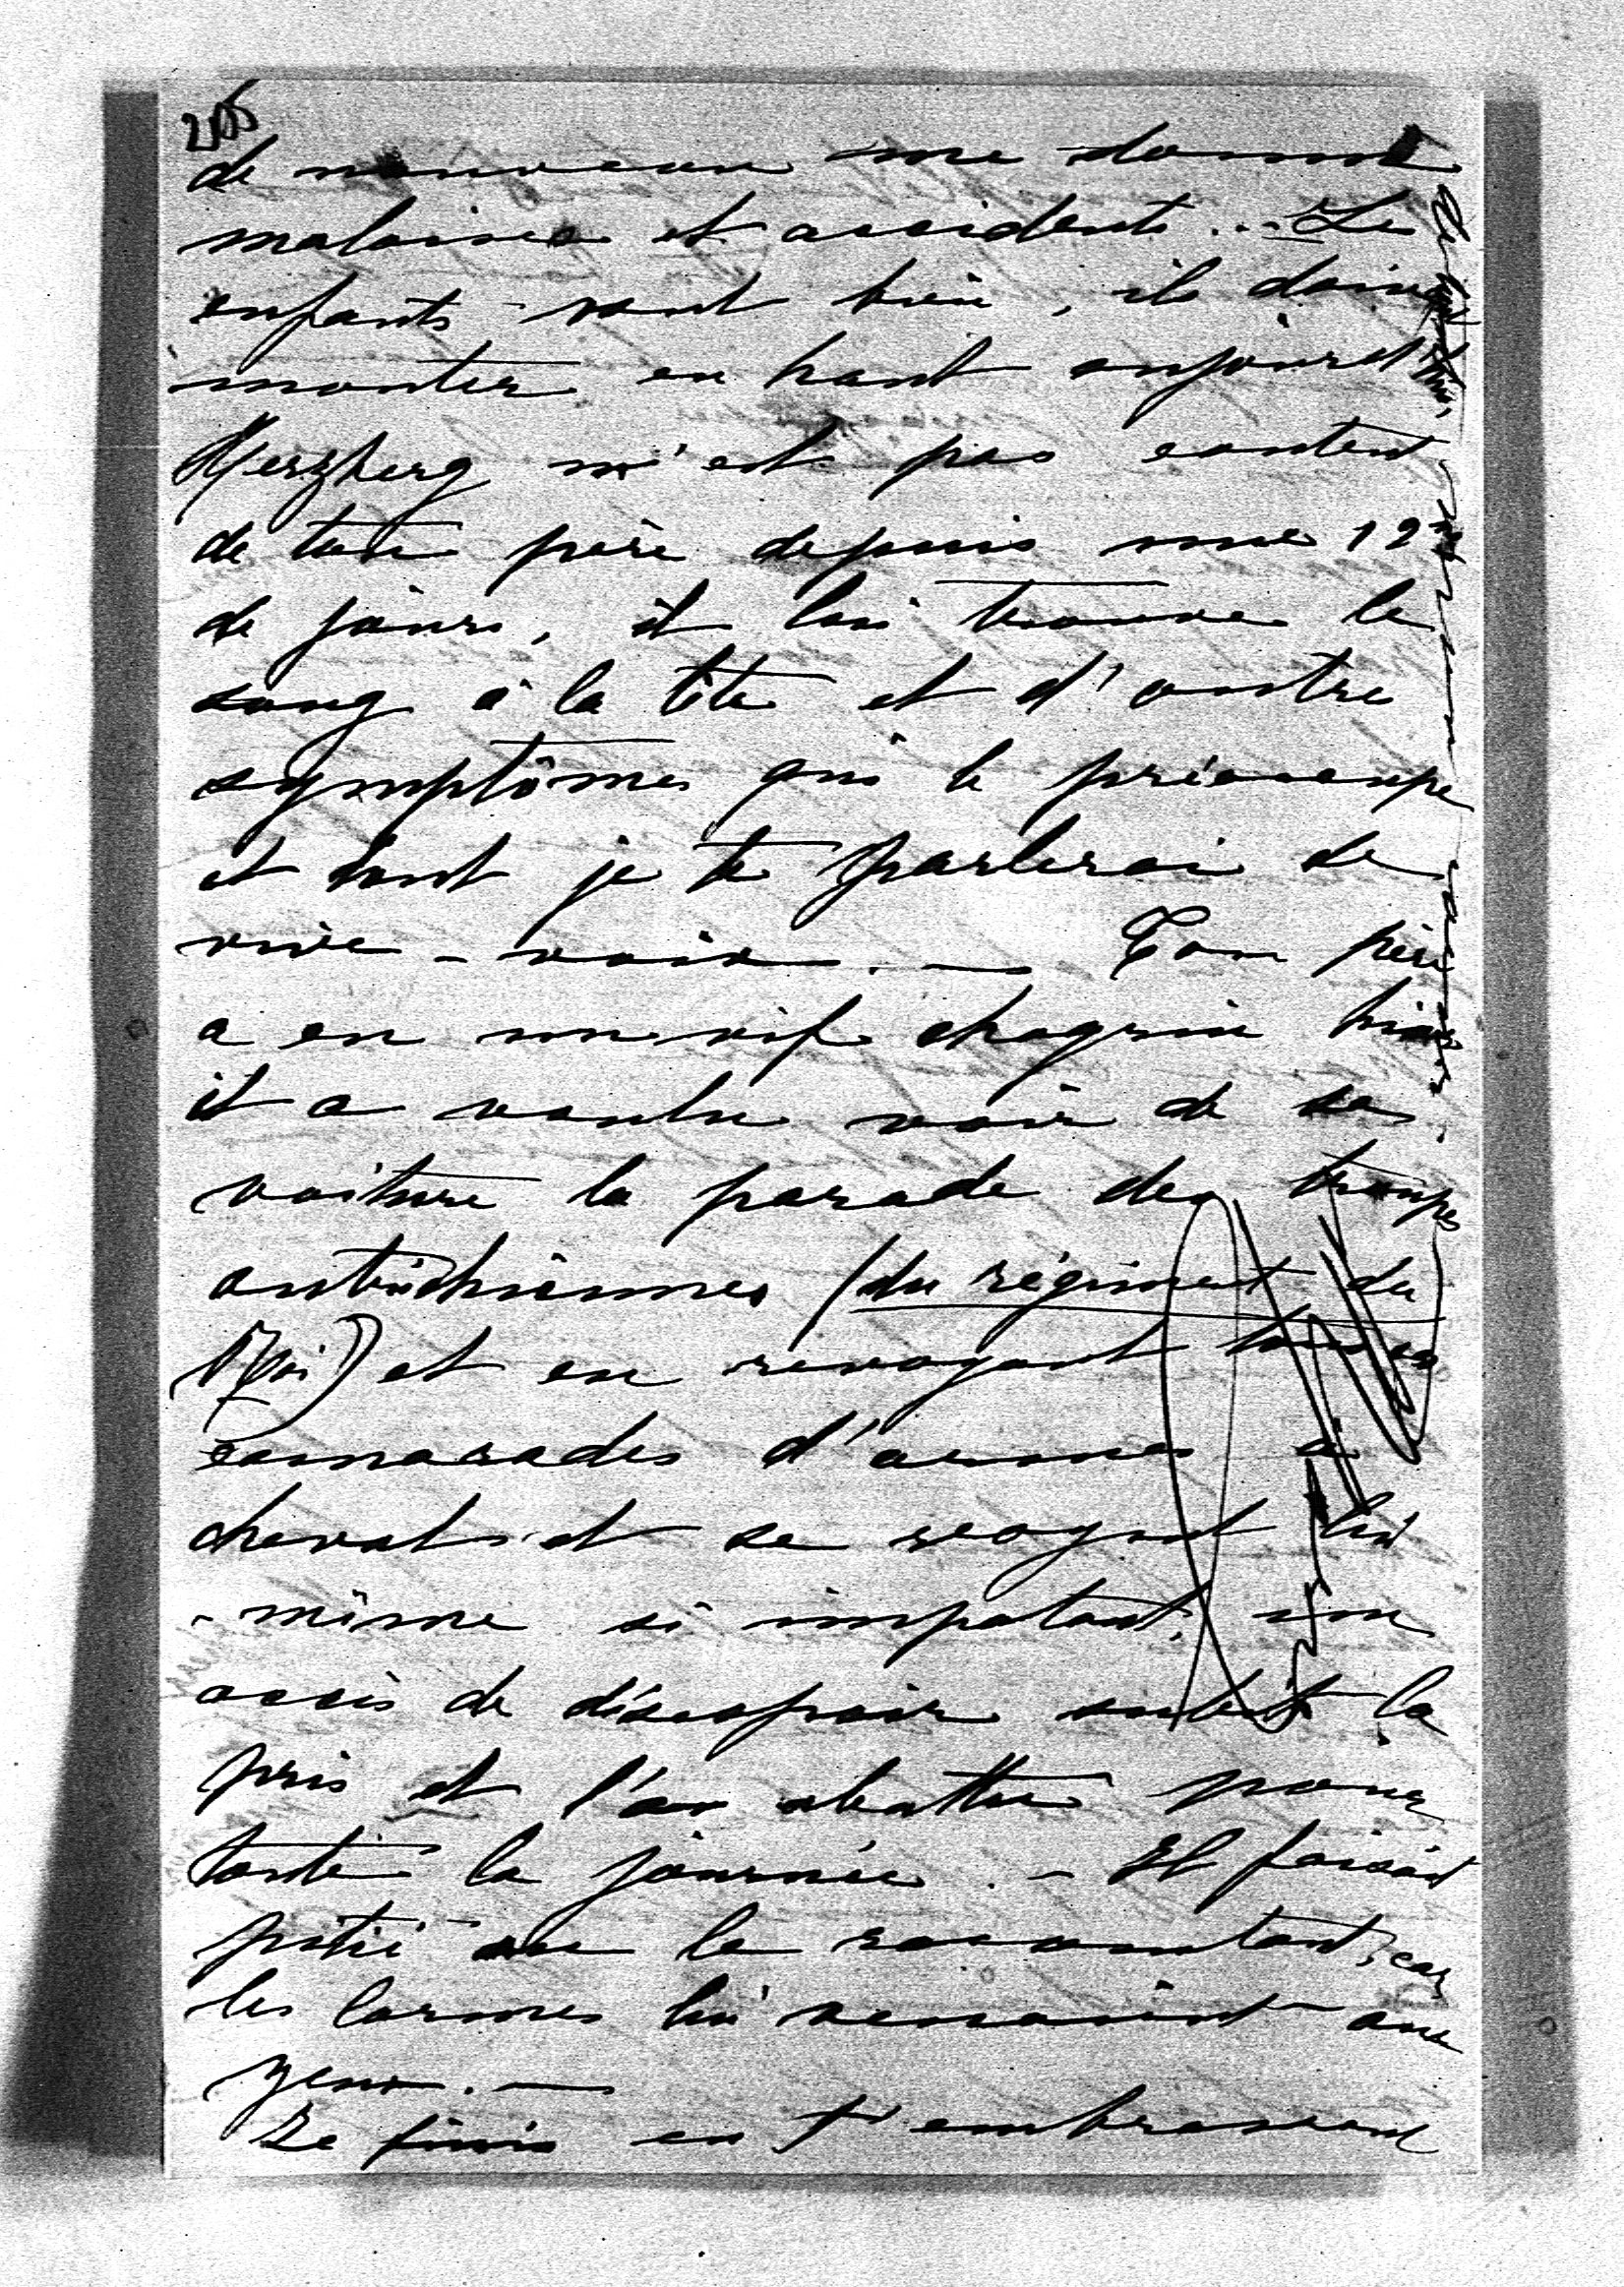 de nouveau me donne
malaises et accidents... Les
enfants vont bien, ils doivent
monter en haut aujourd'hui.
Herzberg n'est pas content
de ton père depuis une 12ne
de jours, il lui trouve le
sang à la tête et d'autre
symptômes qui le préoccupe
et dont je te parlerai de
vive-voix. — Ton père
a eu un vif chagrin hier
il a voulu voir de sa
voiture la parade des troupes
autrichiennes (du régiment du
Roi) et en revoyant tous ces
camarades d'armes à
cheval et se voyant lui
-même si impotent, un
accès de désespoir subit l'a
pris et l'a abattu pour
toute la journée. — Il faisait
pitié en le racontant, car
les larmes lui venaient aux
yeux. —
Je finis en t'embrassant